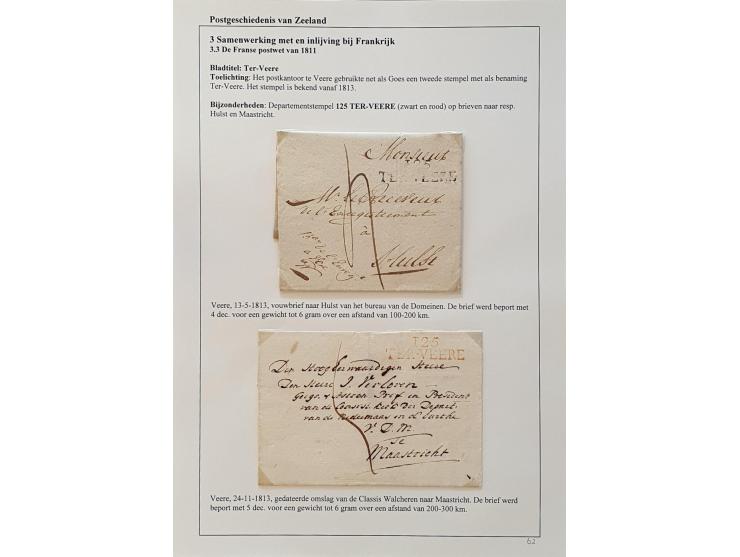 Postgeschiedenis van Zeeland
3 Samenwerking met en inlijving bij Frankrijk
3.3 De Franse postwet van 1811
Bladtitel: Ter-Veere
Toelichting: Het postkantoor te Veere gebruikte net als Goes een tweede stempel met als benaming
Ter-Veere. Het stempel is bekend vanaf 1813.
Bijzonderheden: Departementstempel 125 TER-VEERE (zwart en rood) op brieven naar resp.
Hulst en Maastricht.
Monsieur
125
TER-VEERE
à
Hulst
Veere, 13-5-1813, vouwbrief naar Hulst van het bureau van de Domeinen. De brief werd beport met
4 dec. voor een gewicht tot 6 gram over een afstand van 100-200 km.
125
TER-VEERE
Den Hoog Eerwaardigen Heere
Den Heere J. Verloren
Prof en President
van de
van de en
V. D. M.
te
Maastricht
Veere, 24-11-1813, gedateerde omslag van de Classis Walcheren naar Maastricht. De brief werd
beport met 5 dec. voor een gewicht tot 6 gram over een afstand van 200-300 km.
62